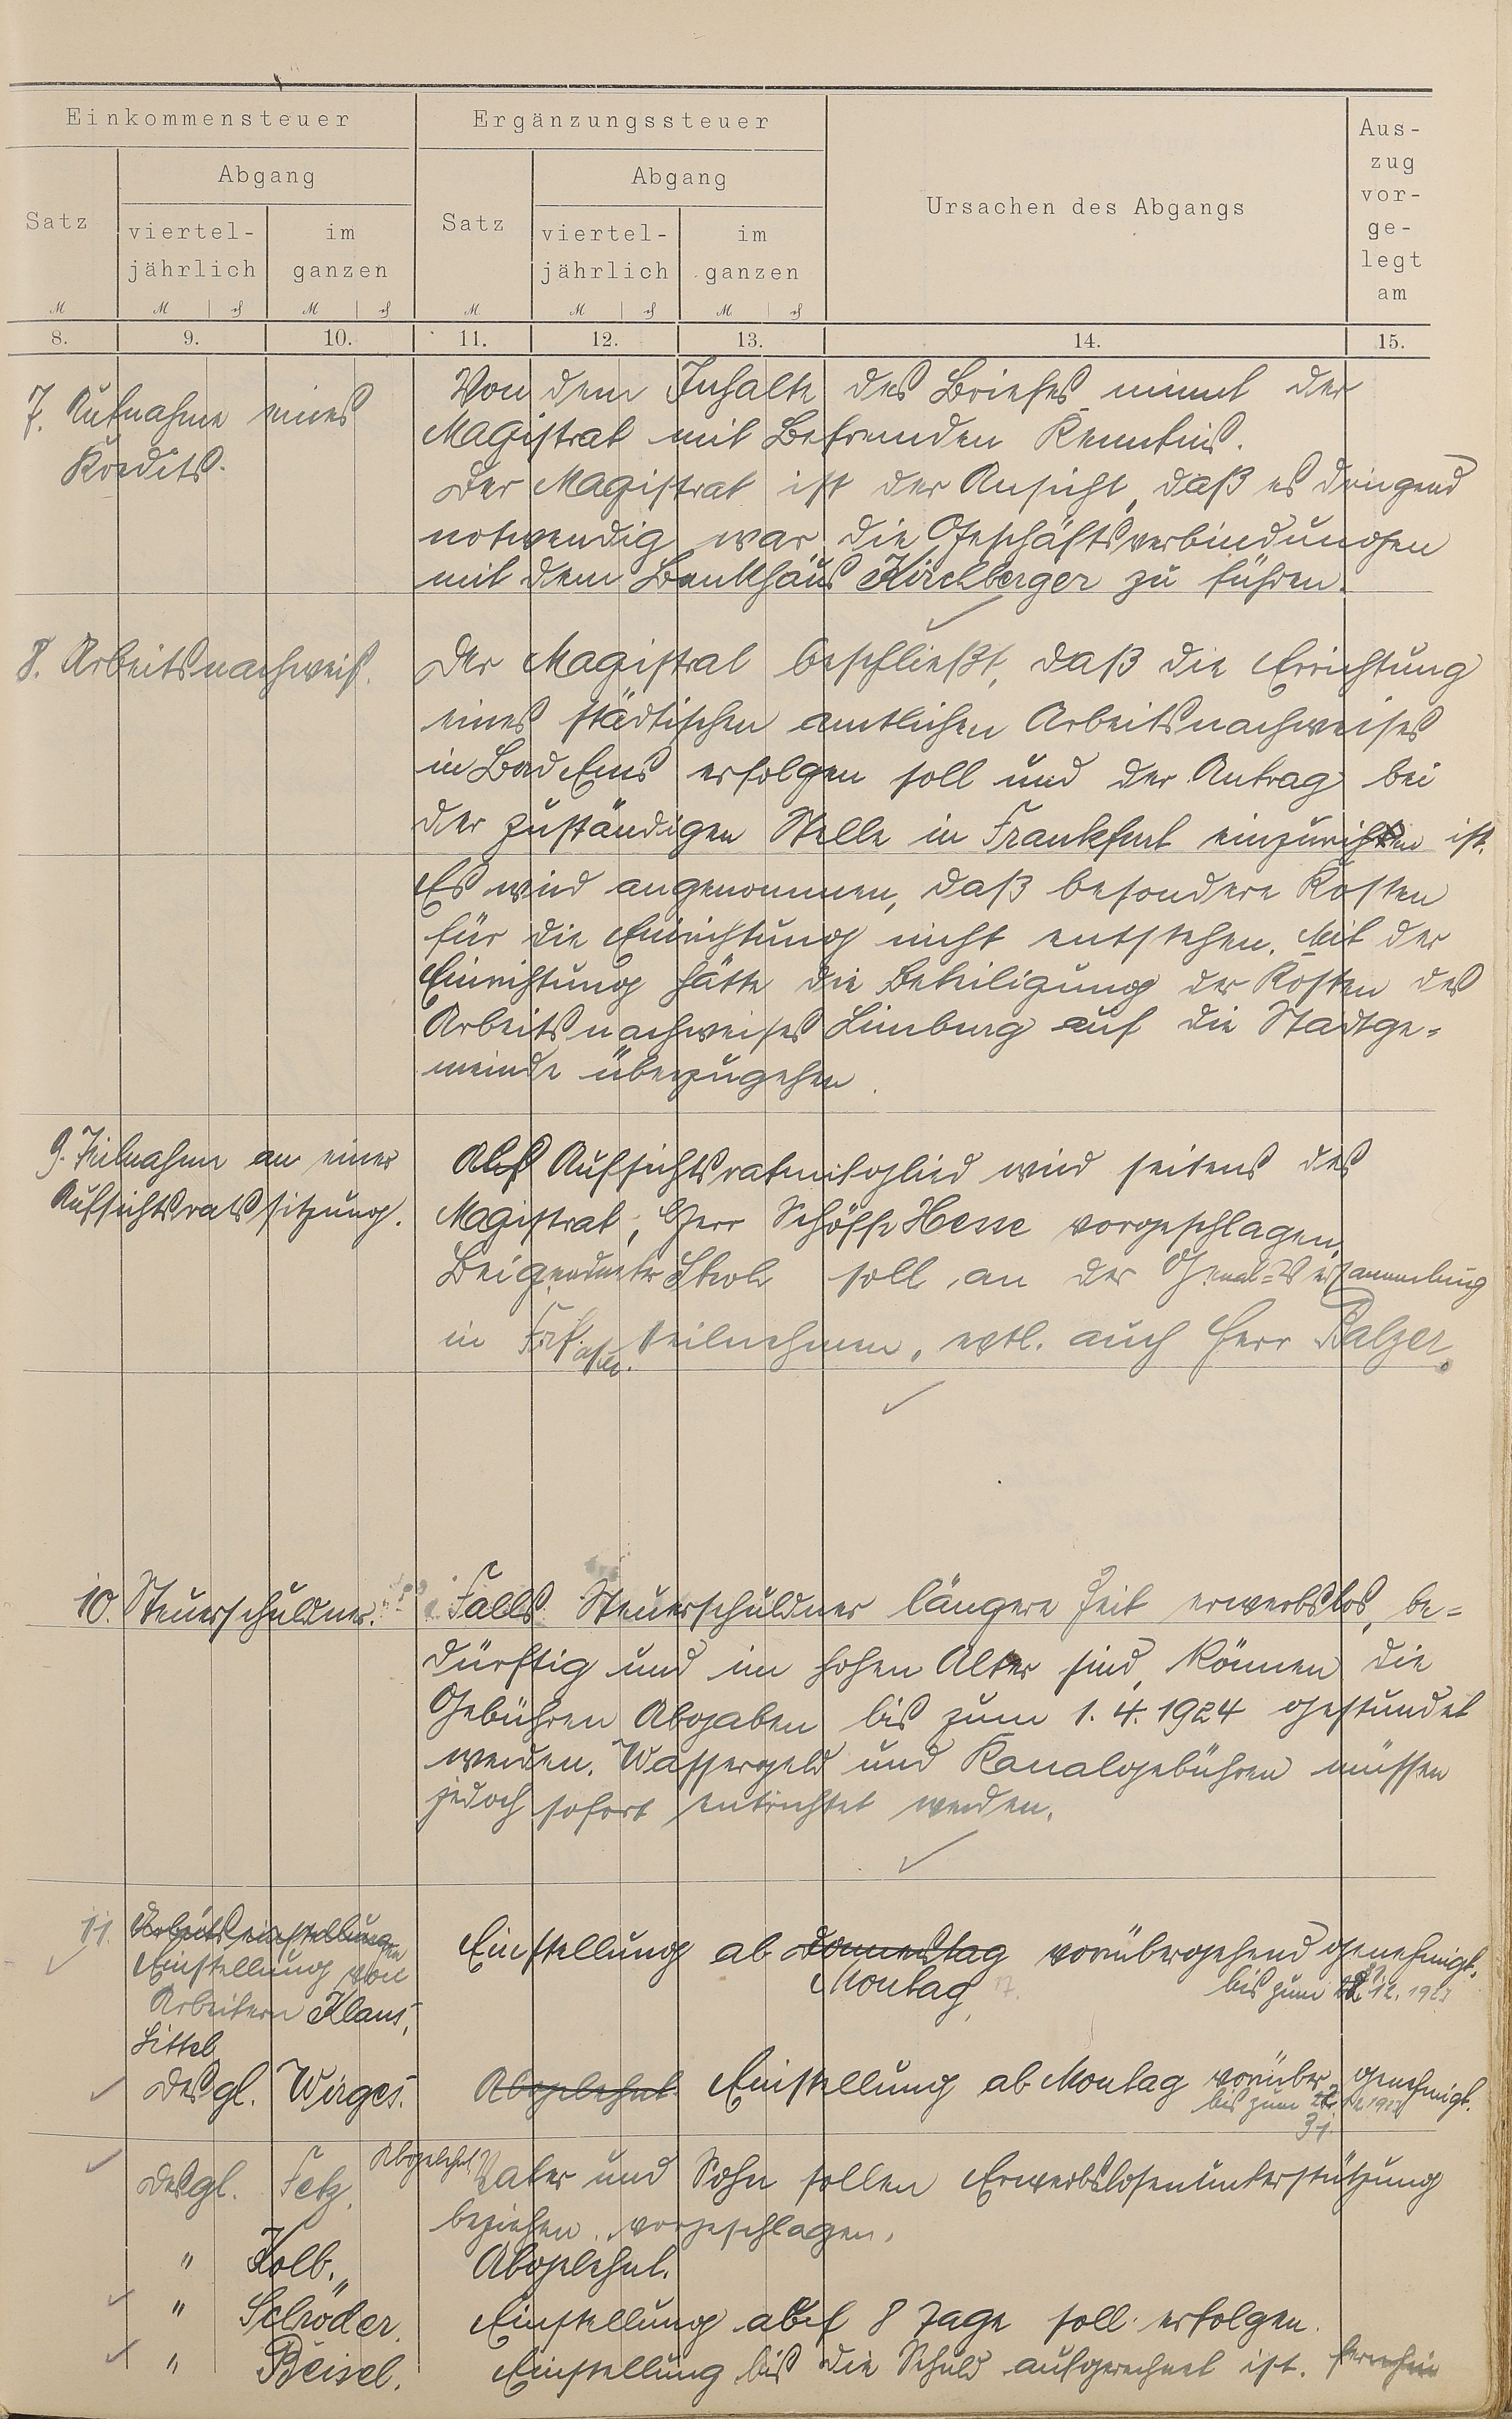 Einkommensteuer
Ergänzungssteuer
Ursachen des Abgangs
Aus-
zug
vor-
ge-
legt
am
Satz
Abgang
viertel-
jährlich
im
ganzen
Satz
Abgang
viertel-
jährlich
im
ganzen
M
M
M
M
M
M
8. 9. 10. 11. 12. 13. 14. 15.
7. Aufnahme eines
Kredits.
Von dem Inhalte des Briefes nimmt der
Magistrat mit Befremden Kenntnis.
Der Magistrat ist der Ansicht, daß es dringend
notwendig war, die Geschäftsverbindungen
mit dem Bankhaus Kirchberger zu führen.
8. Arbeitsnachweis.
Der Magistrat beschließt, daß die Errichtung
eines städtischen amtlichen Arbeitsnachweises
in Bad Ems erfolgen soll und der Antrag bei
der zuständigen Stelle in Frankfurt einzureichen ist.
Es wird angenommen, daß besondere Kosten
für die Einrichtung nicht entstehen. Mit der
Einrichtung hätte die Beteiligung der Kosten des
Arbeitsnachweises Limburg auf die Stadtge=
meinde überzugehen.
9. Teilnahme an einer
Aufsichtsratssitzung.
Als Aufsichtsratmitglied wird seitens des
Magistrat, Herr Schöffe Hesse vorgeschlagen,
Beigeordneter soll an der General=Versammlung
in teilnehmen, evtl. auch Herr Balzer.
10. Steuerschuldner.
Falls Steuerschuldner längere Zeit erwerbslos, be=
dürftig und im hohen Alter sind, können die
Gebühren Abgaben bis zum 1. 4. 1924 gestundet
werden. Wassergeld und Kanalgebühren müssen
jedoch sofort entrichtet werden.
11. Arbeitseinstellungen
Einstellung von
Arbeitern Klaus,
Littel
Einstellung ab Donnerstag vorübergehend genehmigt.
Montag, 17. bis zum 12. 1923
Desgl. Wirges.
Abgelehnt. Einstellung ab Montag vorüber. genehmigt.
bis zum
31.
Desgl. Fetz.
Abgelehnt Vater und Sohn sollen Erwerbslosenunterstützung
beziehen. vorgeschlagen.
" Kolb. Abgelehnt.
" Schröder. Einstellung auf 8 Tage soll erfolgen.
" Beisel. Einstellung bis die Schuld aufgerechnet ist.